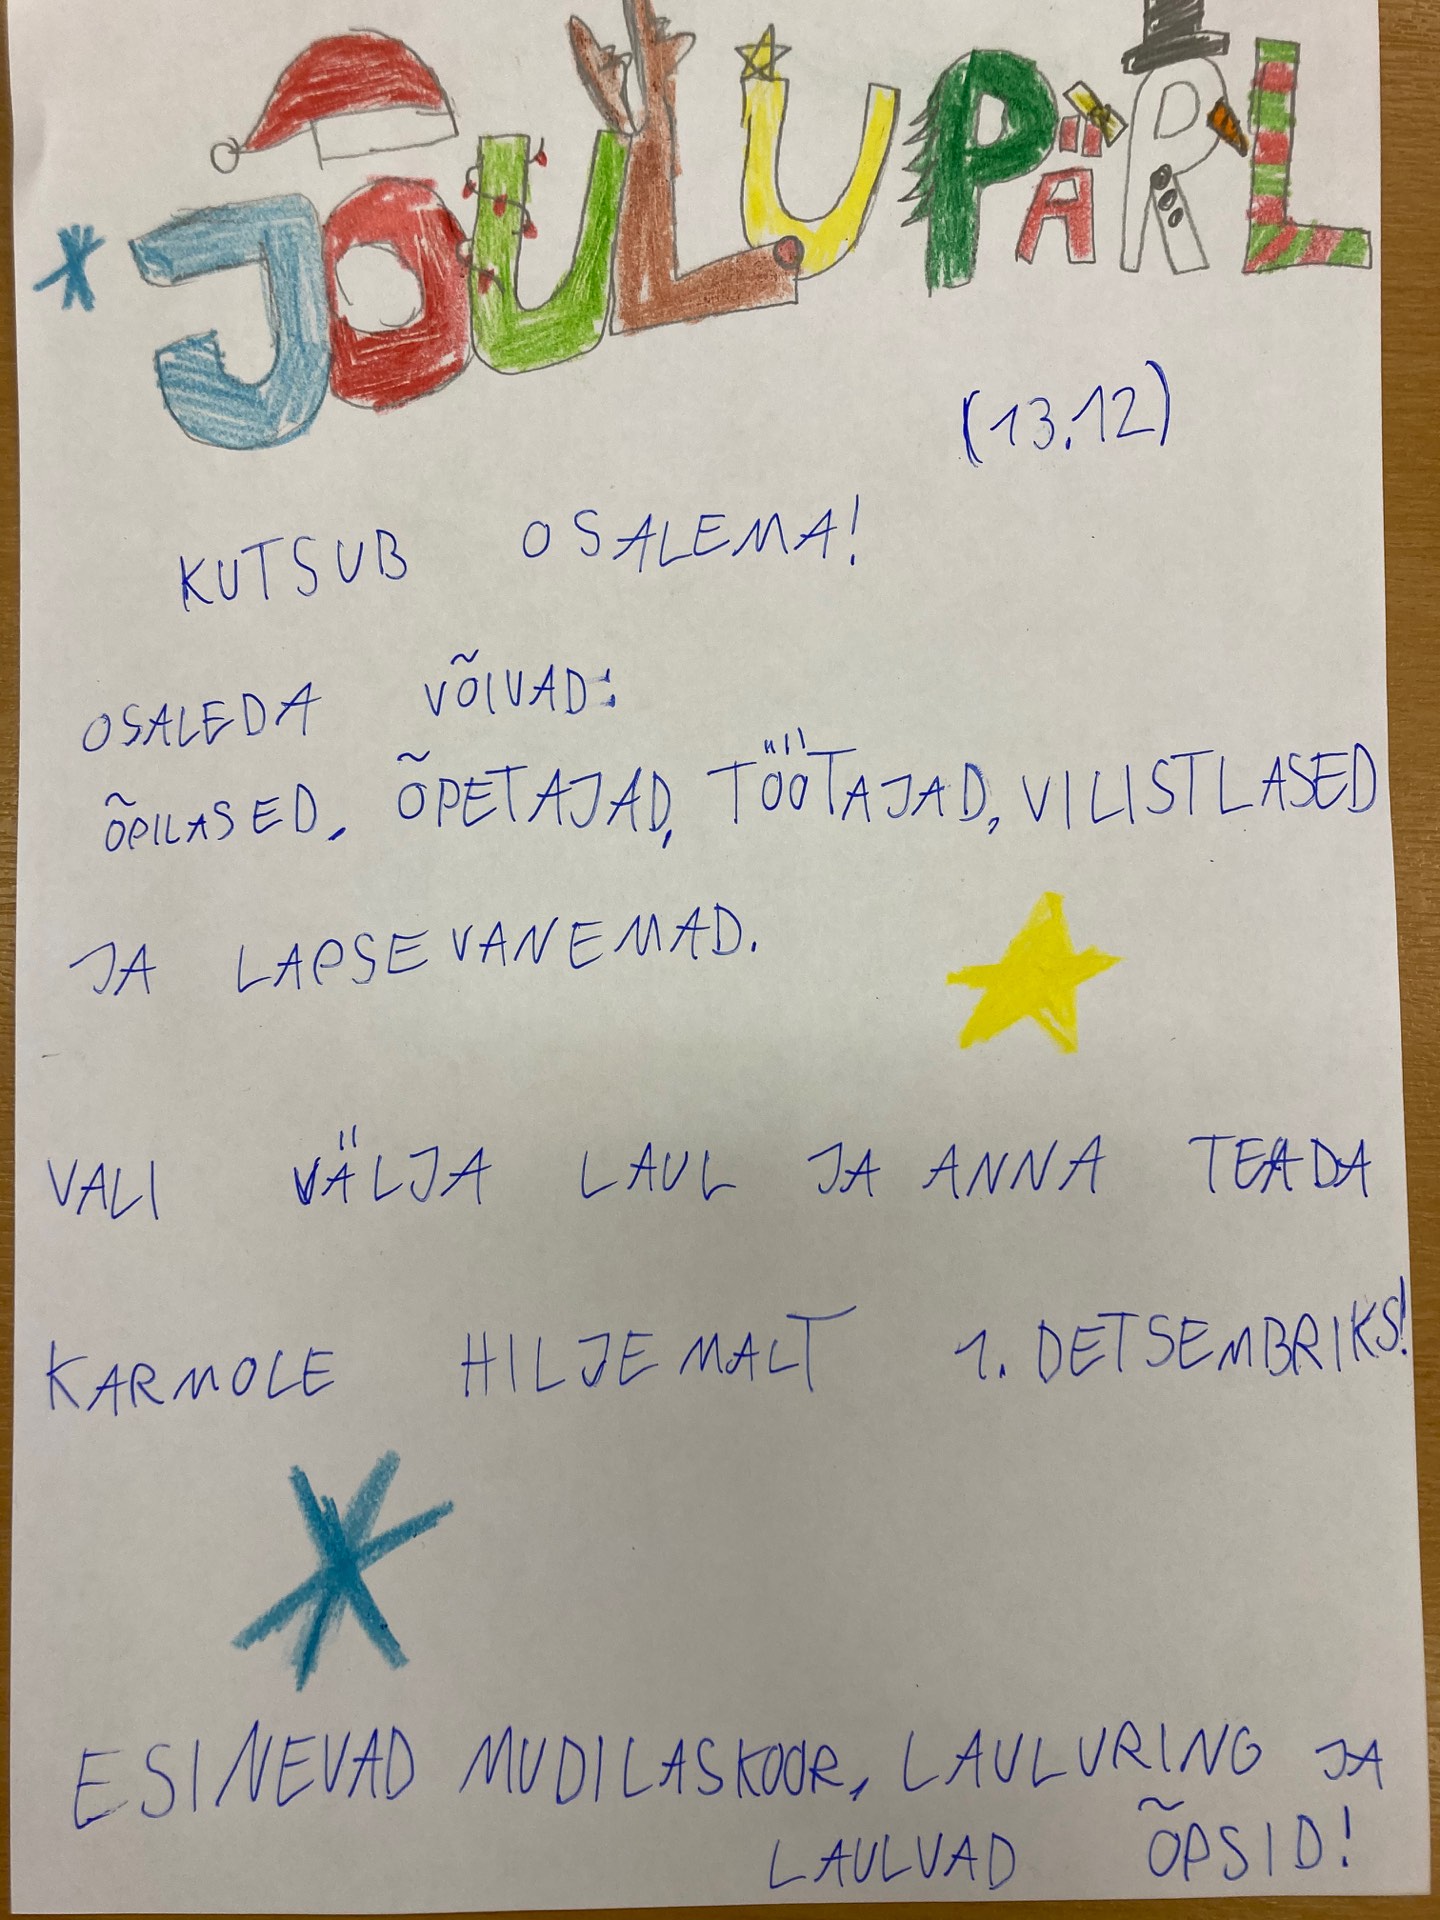 JÕULUPÄRL
(13.12)
KUTSUB OSALEMA!
OSALEDA VÕIVAD:
ÕPILASED, ÕPETAJAD, TÖÖTAJAD, VILISTLASED
JA LAPSEVANEMAD.
VALI VÄLJA LAUL JA ANNA TEADA
KARMOLE HILJEMALT 1. DETSEMBRIKS!
ESINEVAD MUDILASKOOR, LAULURING JA
LAULVAD ÕPSID!